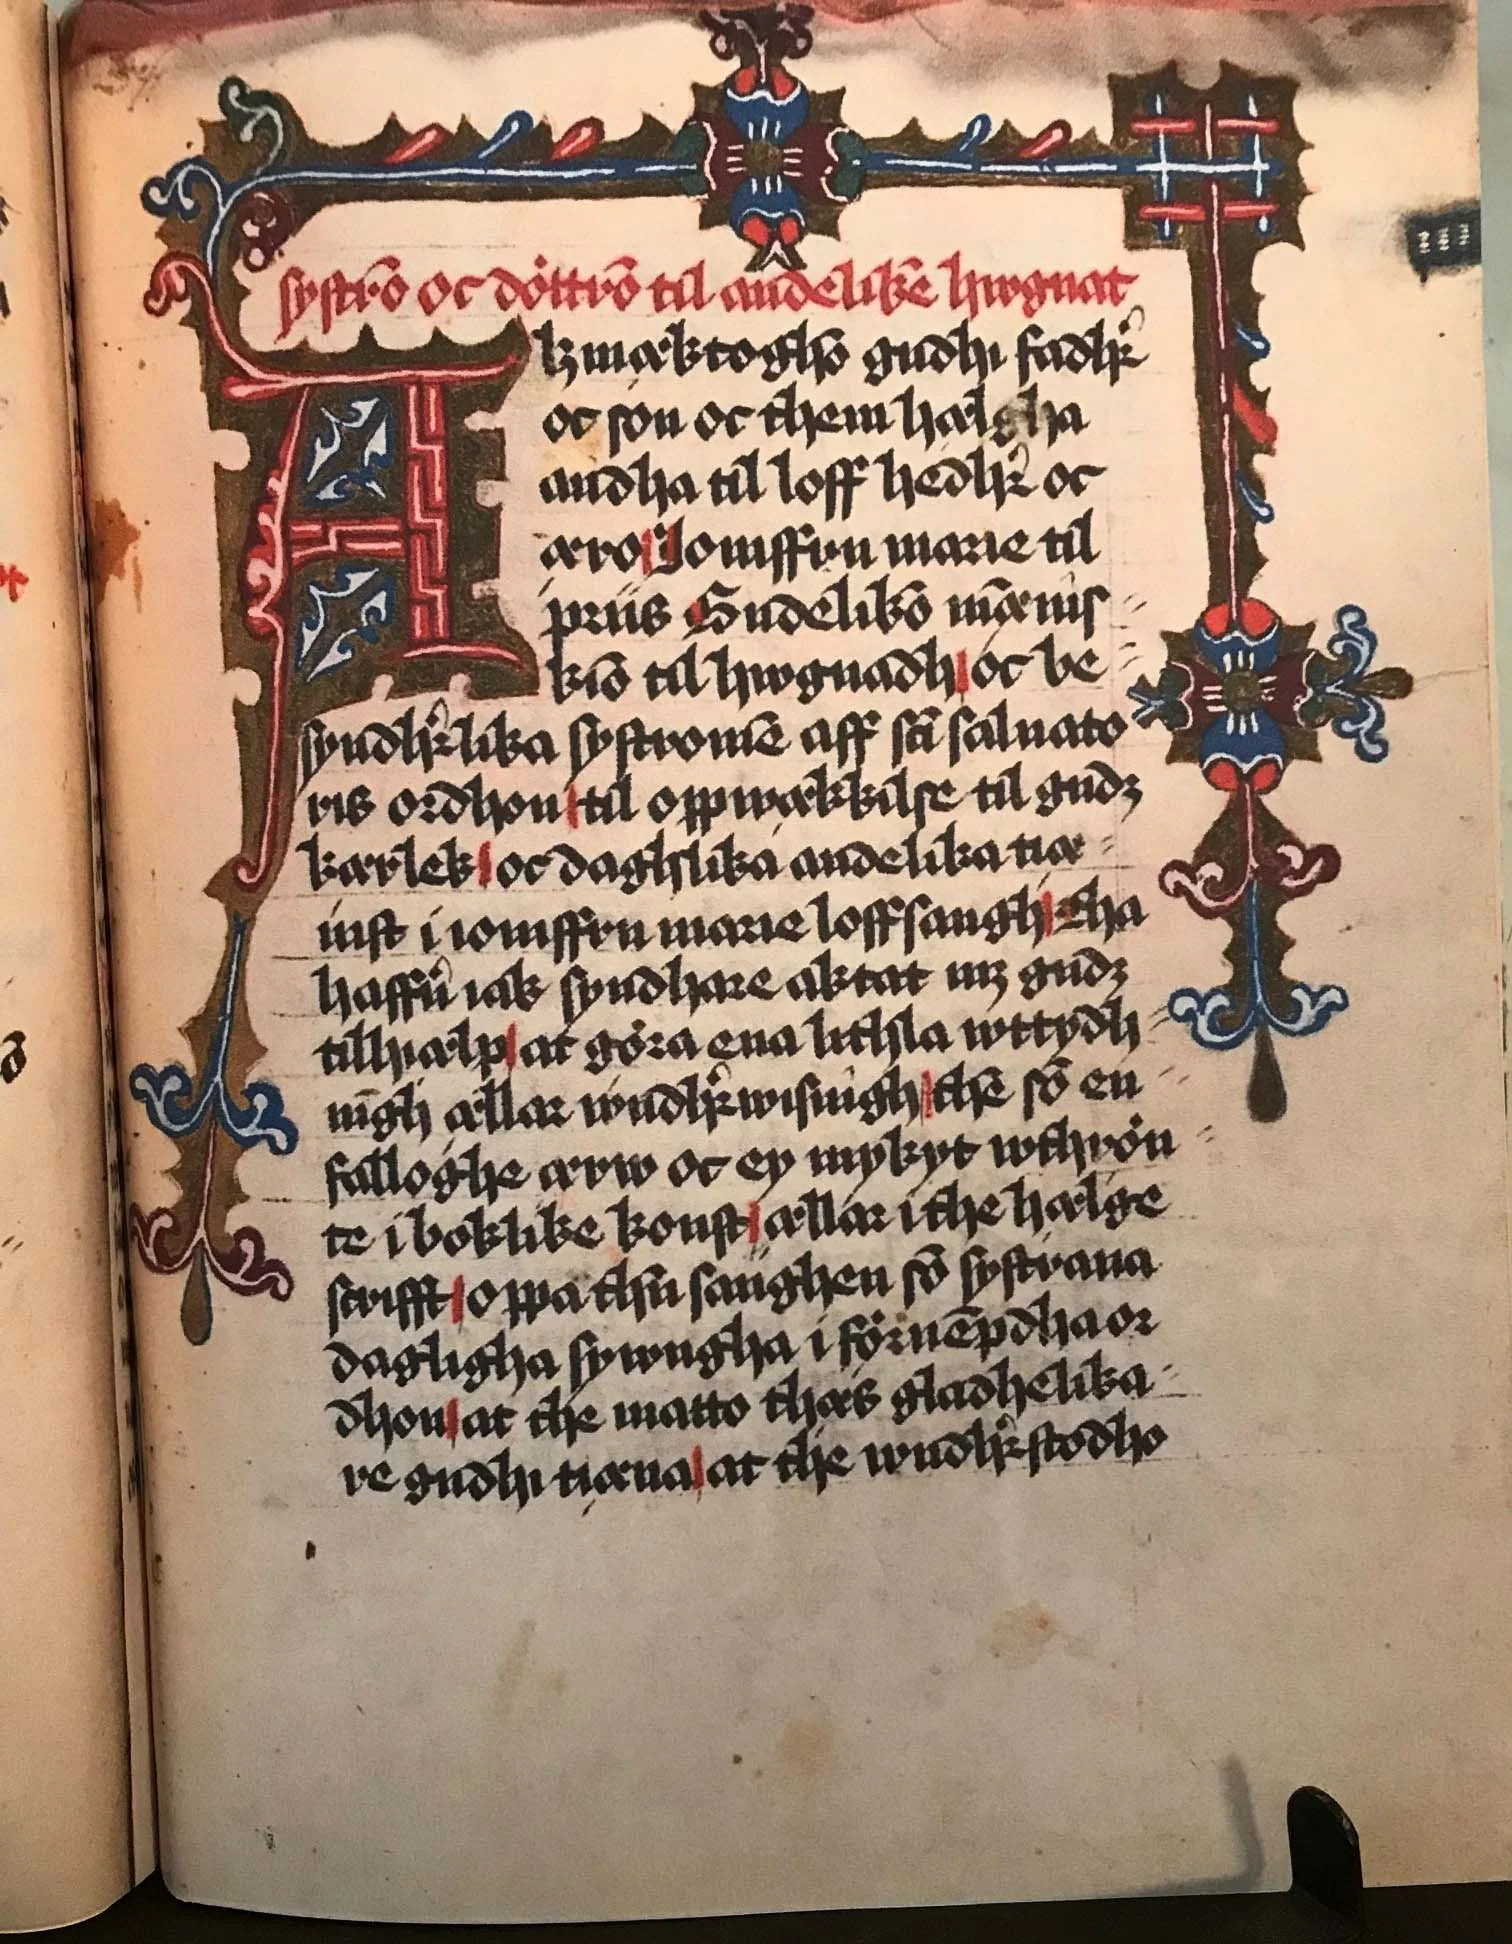 systrō oc döttrō til andelikē hwgnat
Alzmæktoghō gudhi fadhr
oc son oc them hælgha
andha til loff hedhr oc
æro Jomffrv marie til
priis Gudelikō mænnis
kiō til hwgnadh oc be
syndhrlika systromē aff scī saluato
ris ordhon til oppwækkilse til gudz
kærlek oc daghlika andelika tiæ
nist i iomffrv marie loffsangh Tha
haffr iak syndhare aktat mz gudz
tillhælp at göra ena lithla wttydh
nīgh ællar wndhrwisnīgh thē sō en
falloghe ærw oc ey mykyt wthrön
te i boklike konst ællar i the hælge
scrifft oppa thn sanghen sō systrana
dagligha sywngha i förnēpdha or
dhom at the matto thæs gladhelika
re gudhi tiæna at the wndhrstodho